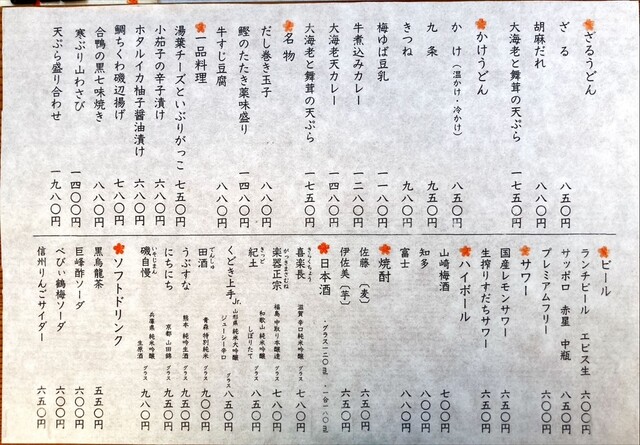 ざるうどん
ざる 八五〇円
胡麻だれ 八八〇円
大海老と舞茸の天ぷら 一七五〇円
かけうどん
かけ（温かけ・冷かけ） 八五〇円
九条 九五〇円
きつね 九八〇円
梅ゆば豆乳 一一八〇円
牛煮込みカレー 一二八〇円
大海老天カレー 一四八〇円
大海老と舞茸の天ぷら 一七五〇円
名物
だし巻き玉子 八八〇円
鰹のたたき薬味盛り 一四八〇円
牛すじ豆腐 八八〇円
一品料理
湯葉チーズといぶりがっこ 七五〇円
小茄子の辛子漬け 六八〇円
ホタルイカ柚子醤油漬け 六八〇円
鯛ちくわ磯辺揚げ 七八〇円
合鴨の黒七味焼き 八八〇円
寒ぶり山わさび 一四〇〇円
天ぷら盛り合わせ 一九八〇円
ビール
ランチビール エビス生 六〇〇円
サッポロ 赤星 中瓶 八五〇円
プレミアムフリー 六〇〇円
サワー
国産レモンサワー 六五〇円
生搾りすだちサワー 六五〇円
ハイボール
山崎梅酒 七〇〇円
知多 八〇〇円
富士 八八〇円
焼酎
佐藤（麦） 六五〇円
伊佐美（芋） 六五〇円
日本酒 ・グラス一二〇㎖ ・一合一八〇㎖
喜楽長 きらくちょう 滋賀 辛口純米吟醸 グラス 七八〇円
楽器正宗 がっきまさむね 福島 中取り本醸造 グラス 七八〇円
紀土 きっど 和歌山 純米吟醸 しぼりたて グラス 八八〇円
くどき上手Jr. 山形県 純米大吟醸 ジューシー辛口 グラス 八五〇円
田酒 でんしゅ 青森 特別純米 グラス 九〇〇円
うぶすな 熊本 純吟生酒 グラス 九五〇円
にちにち 京都 山田錦 グラス 九五〇円
磯自慢 いそじまん 兵庫県 純米吟醸 生原酒 グラス 九八〇円
ソフトドリンク
黒烏龍茶 五五〇円
巨峰酢ソーダ 六〇〇円
べびぃ鶴梅ソーダ 六〇〇円
信州りんごサイダー 六五〇円